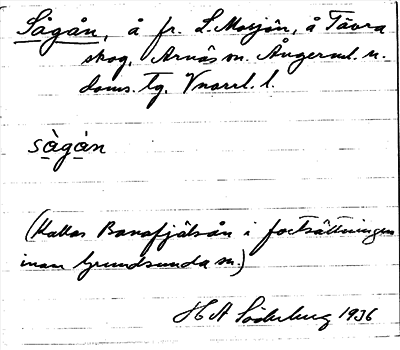 Sågån, å fr. L. Mosjön, å Tävra
skog, Arnäs sn. Ångerml. n.
doms. tg. Vnorrl. l.
sàgàn
(Kallas Banafjälsån i fortsättningen
inom Grundsunda sn.)
H A Söderberg 1936